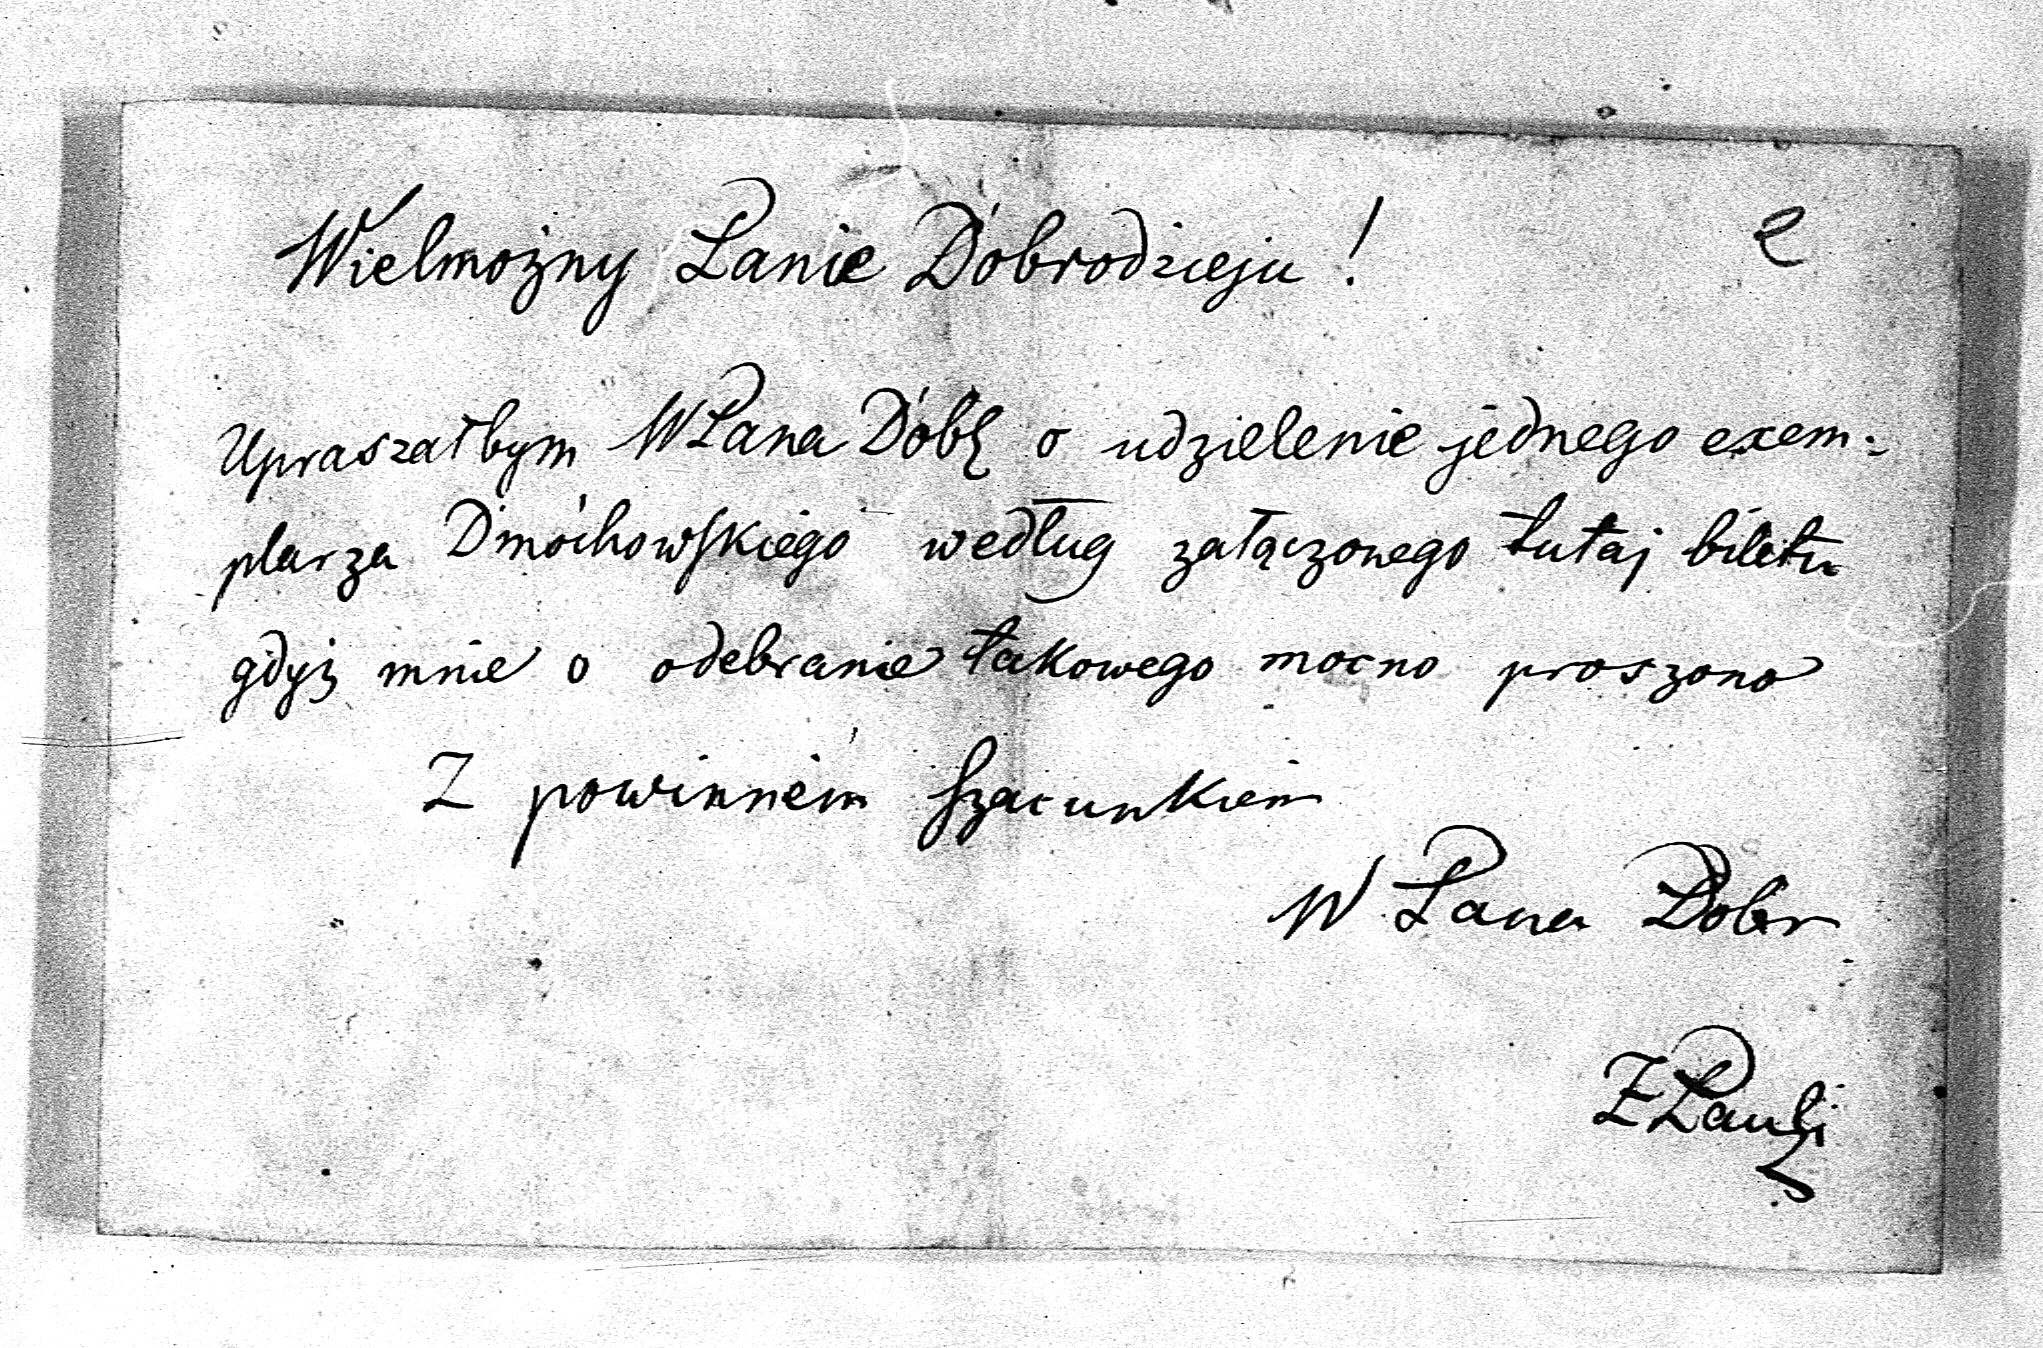 Wielmożny Panie Dobrodzieju !
Upraszałbym WPana Dobr o udzielenie jednego exem-
plarza Dmóchowskiego według załączonego tutaj biletu
gdyż mnie o odebranie takowego mocno proszono
Z powinném szacunkiem
W Pana Dobr
Ż Pauli